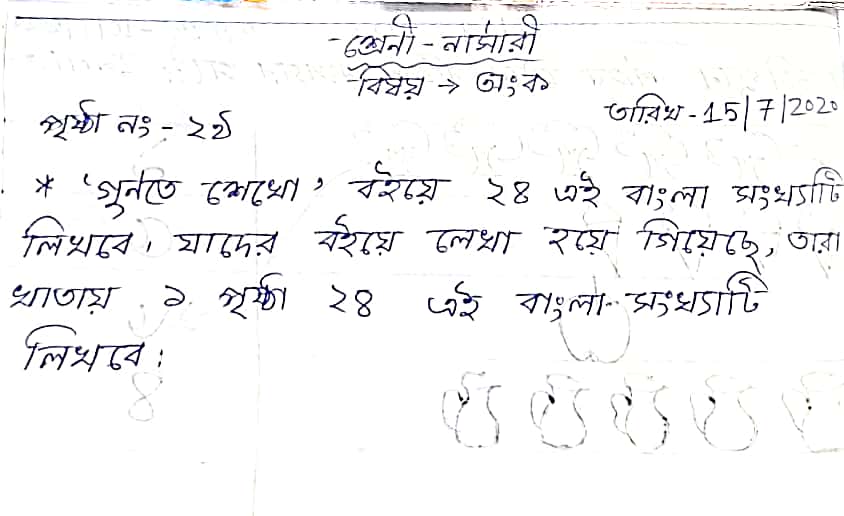 শ্রেনী - নার্সারী
বিষয় → অংক
তারিখ - 15/7/2020
পৃষ্ঠা নং - ২৯
* 'গুনতে শেখো' বইয়ে ২৪ এই বাংলা সংখ্যাটি
লিখবে। যাদের বইয়ে লেখা হয়ে গিয়েছে, তারা
খাতায় ১ পৃষ্ঠা ২৪ এই বাংলা সংখ্যাটি
লিখবে।